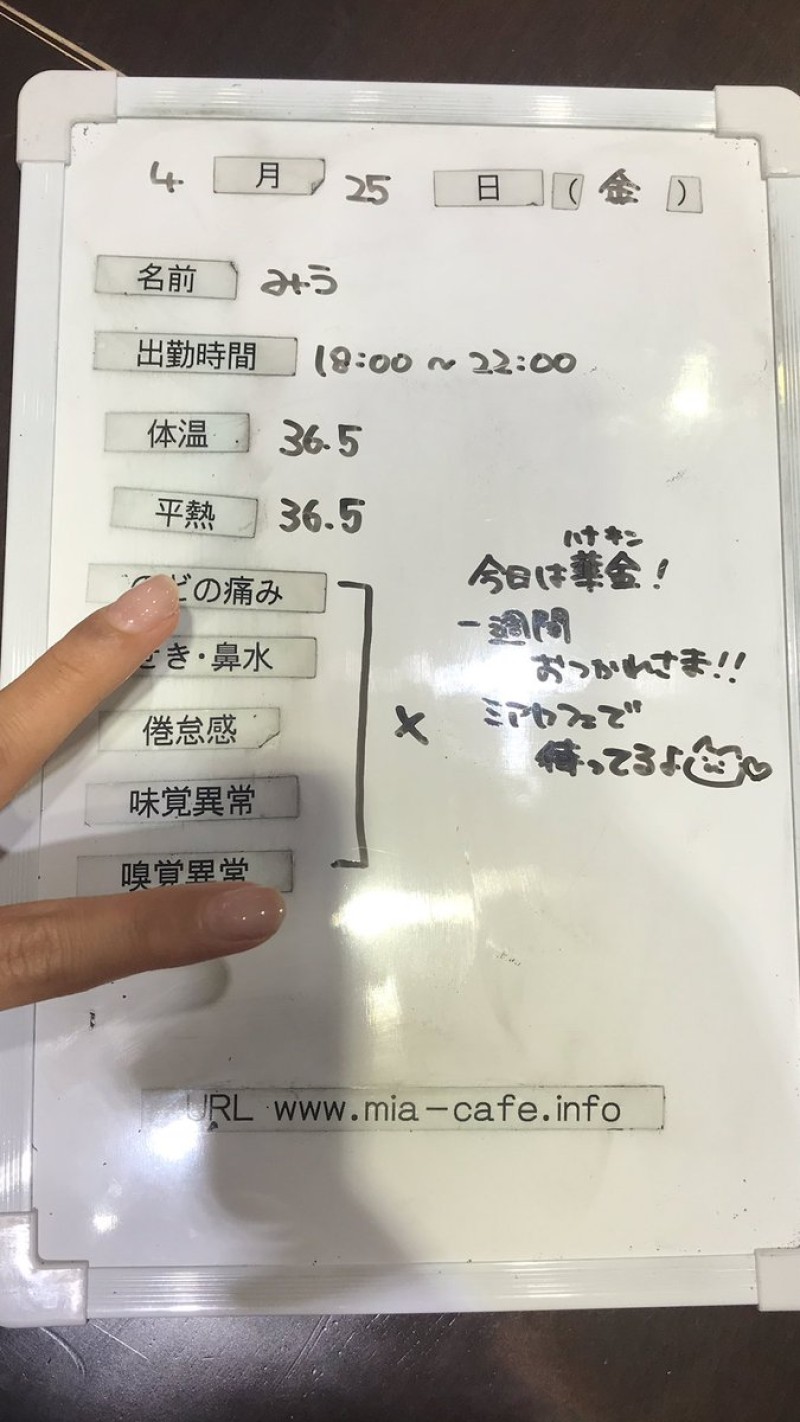 4月25日(金)
名前 みう
出勤時間 18:00～22:00
体温 36.5
平熱 36.5
のどの痛み
せき・鼻水
倦怠感
味覚異常
嗅覚異常
×
ハナキン
今日は華金!
一週間
おつかれさま!!
ミアカフェで
待ってるよ♡
URL www.mia-cafe.info